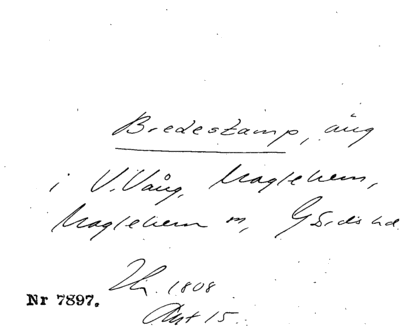 Bredestamp, äng
i V. Vång, Maglehem,
Maglehem sn, Gärds hd.
Lh. 1808
Akt 15.
Nr 7897.